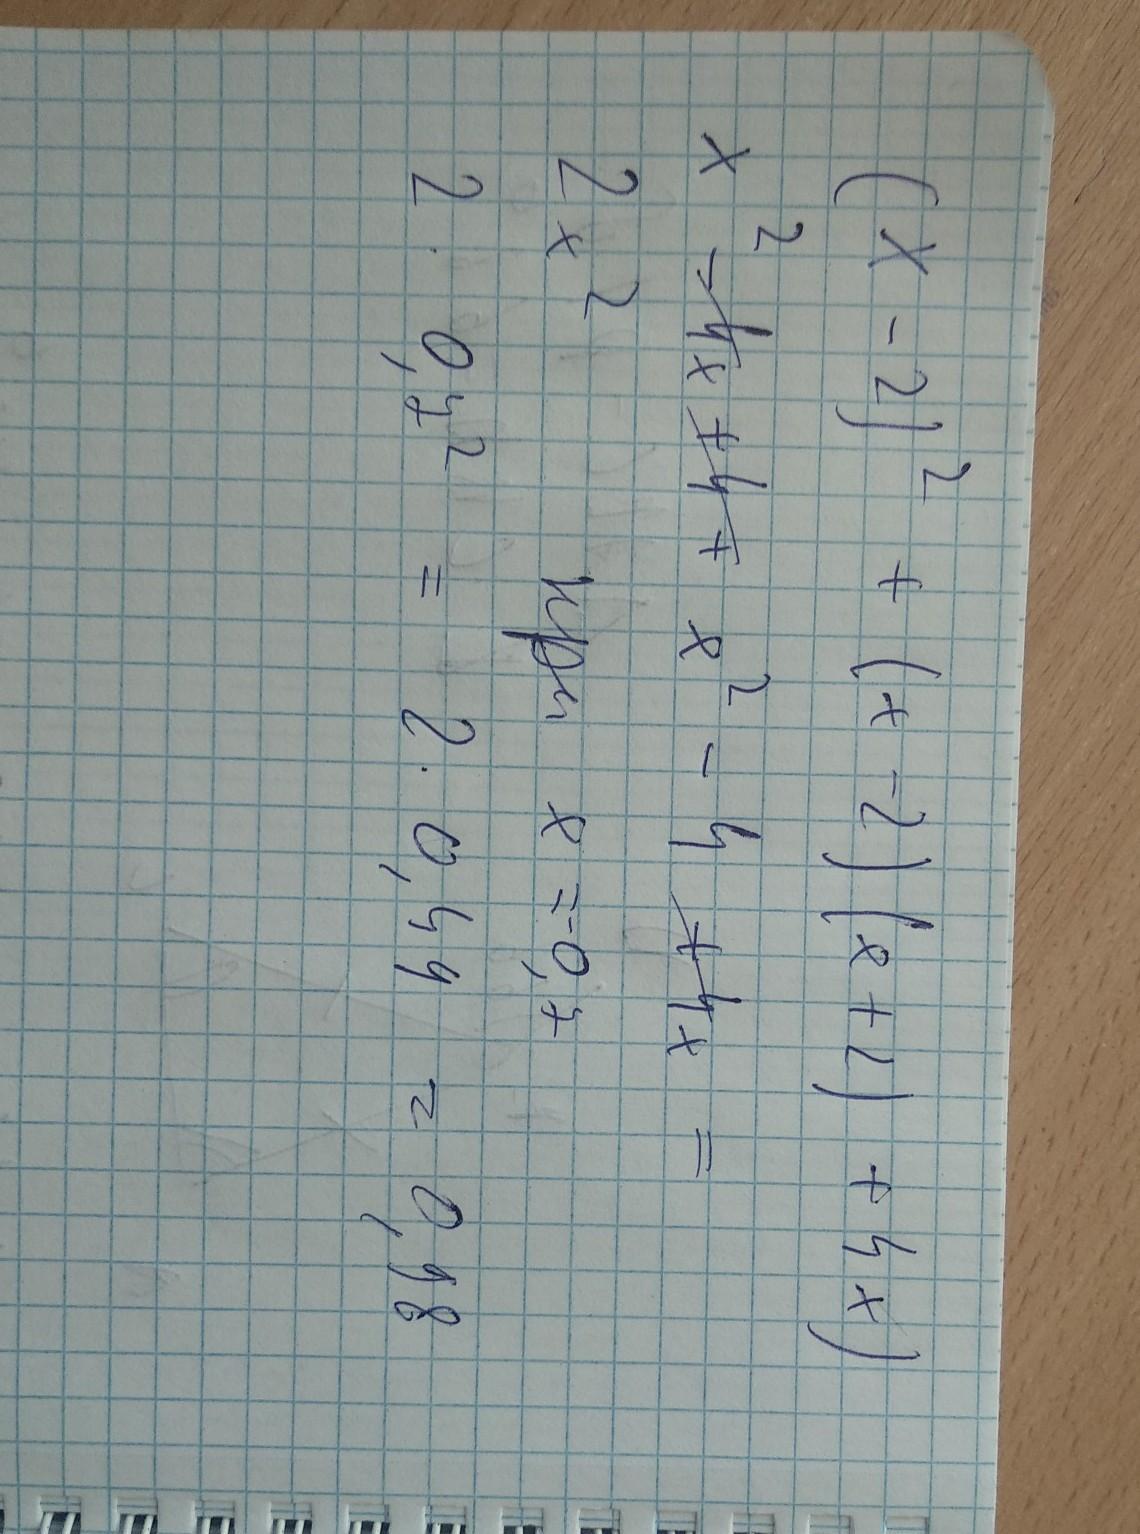 (x - 2)² + (x - 2)(x + 2) + 4x)
x² - 4x + 4 + x² - 4 + 4x =
2x² при x = -0,7
2 · 0,7² = 2 · 0,49 = 0,98